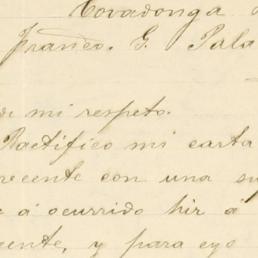 Covadonga
Franco. G. Pala
de mi respeto.
Ractifico mi carta
recente con una su
e á ocurrido hir á
cente, y para eyo